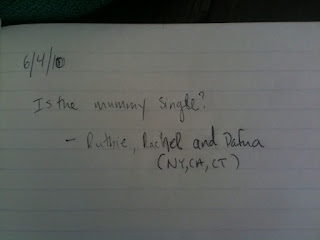 6/4/10
Is the mummy single?
- Ruthie, Rachel and Dafna
(NY, CA, CT)